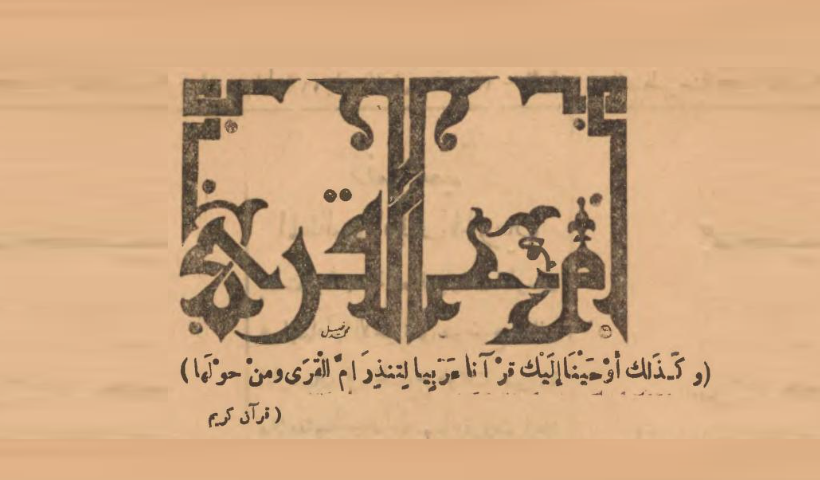 أم القرى
(و كَـذَلك أوْحَيْنَا إلَيْك قرْآنا عَرَبِيا لِتنذِرَ امّ القْرَى ومنْ حوْلَها)
(قرآن كريم